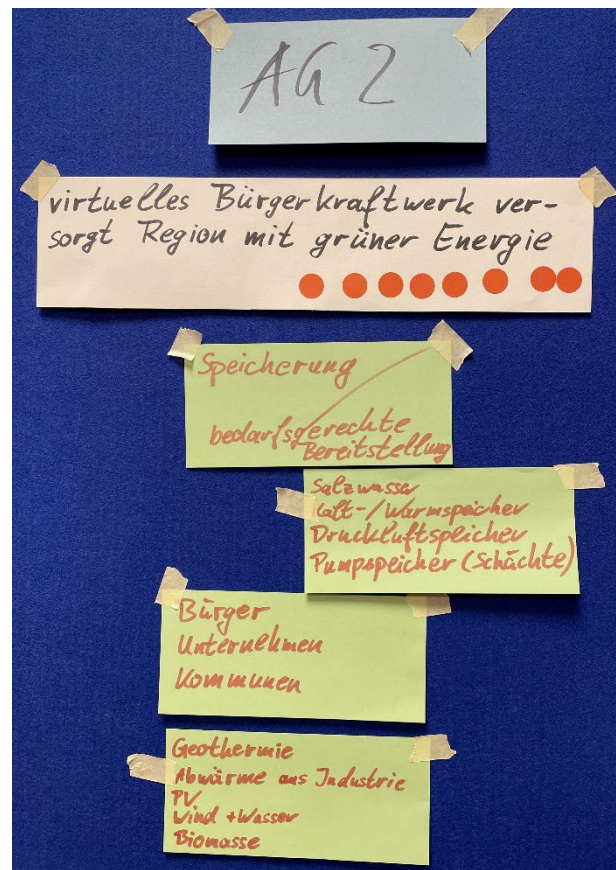 AG 2
virtuelles Bürgerkraftwerk ver-
sorgt Region mit grüner Energie
Speicherung
bedarfsgerechte
Bereitstellung
Salzwasser
Kalt-/Warmspeicher
Druckluftspeicher
Pumpspeicher (Schächte)
Bürger
Unternehmen
Kommunen
Geothermie
Abwärme aus Industrie
PV
Wind + Wasser
Biomasse